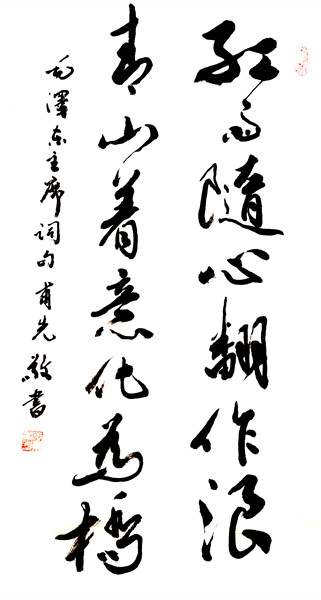 红雨隨心翻作浪
青山着意化为橋
毛澤东主席词句甫先敬書